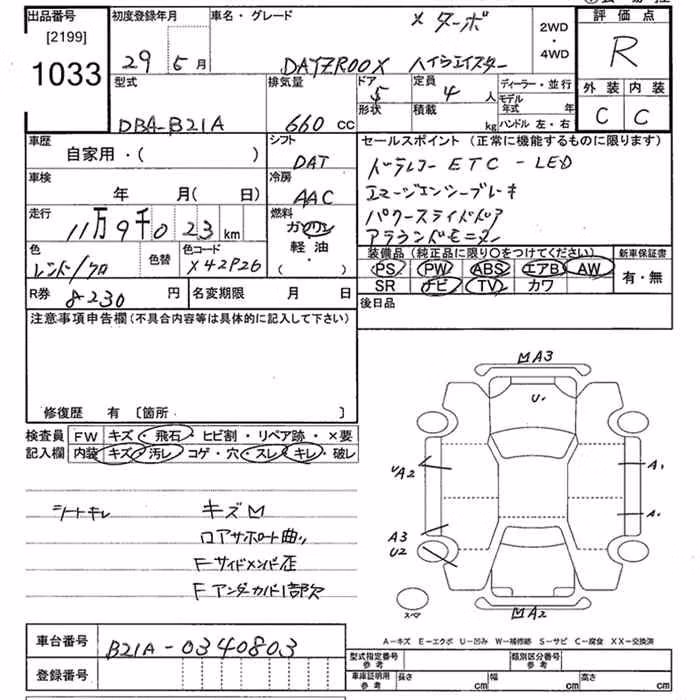 出品番号
[2199]
1033
初度登録年月
29 5月
車名・グレード
X ターボ
DAYZROOX ハイウェイスター
2WD
・
4WD
評価点
R
外装 内装
C C
型式
DBA-B21A
排気量
660 CC
ドア
5
形状
定員
4 人
積載
kg
ディーラー・並行
モデル年式 年
ハンドル 左・右
車歴
自家用・( )
シフト
DAT
車検
年 月( 日)
冷房
AAC
走行
11万9千023km
燃料
ガソリン
軽油
・( )
色
レンド/クロ
色替
色コード
X42P26
R券
8230円
名変期限 月 日
セールスポイント (正常に機能するものに限ります)
ドラレコー ETC - LED
エマージェンシーブレーキ
パワースライドドア
アラウンドモニター
装備品(純正品に限り○をつけてください)
PS PW ABS エアB AW
SR ナビ TV カワ
新車保証書
有・無
後日品
注意事項申告欄(不具合内容等は具体的に記入して下さい)
修復歴 有 〔箇所 〕
検査員
記入欄
FW キズ・飛石・ヒビ割・リペア跡・×要
内装 キズ・汚レ・コゲ・穴・スレ・キレ・破レ
シートキレ
キズM
コアサポート曲り
Fサイドメンバー歪
Fアンダーカバー1部欠
MA3
U・
A2
A1
A1
A3
U2
MA2
スペア
A-キズ E-エクボ U-凹み W-補修跡 S-サビ C-腐食 XX-交換済
車台番号
B21A-0340803
登録番号
型式指定番号
参考
類別区分番号
参考
車庫証明用
参考
長さ cm
幅 cm
高さ cm